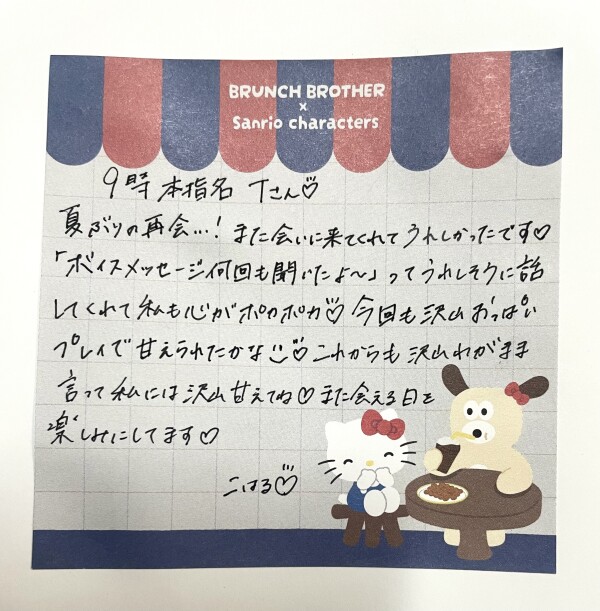 BRUNCH BROTHER
×
Sanrio characters
9時 本指名 Tさん♡
夏ぶりの再会…! また会いに来てくれてうれしかったです♡
「ボイスメッセージ何回も聞いたよ〜」ってうれしそうに話
してくれて私も心がポカポカ♡ 今回も沢山おっぱい
プレイで甘えられたかな♡ これからも沢山わがまま
言って私には沢山甘えてね♡ また会える日を
楽しみにしてます♡
こはる♡